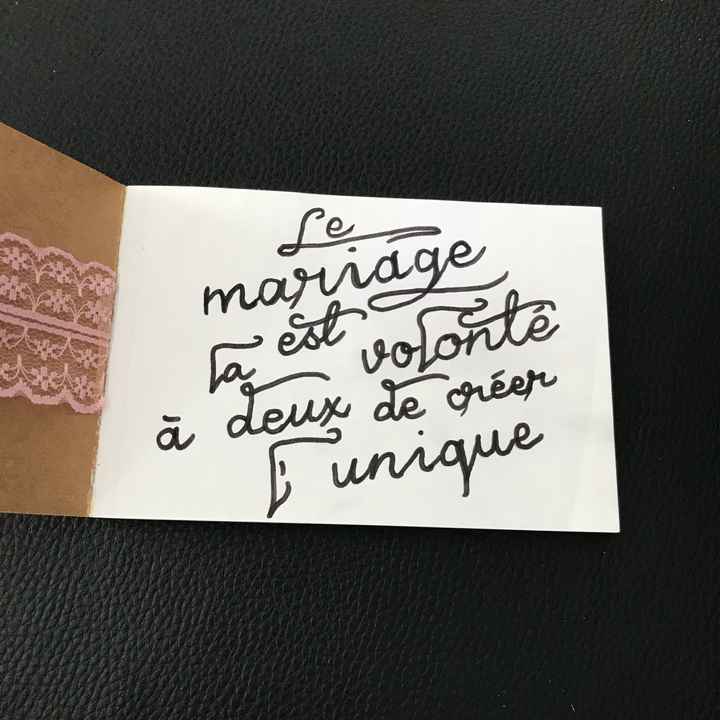 Le
mariage
est
la volonté
à deux de créer
l' unique